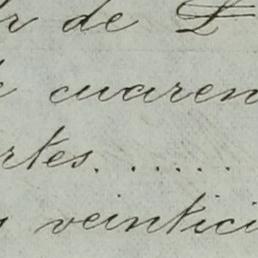 r de £
cuaren
rtes. . . . . .
s veintici